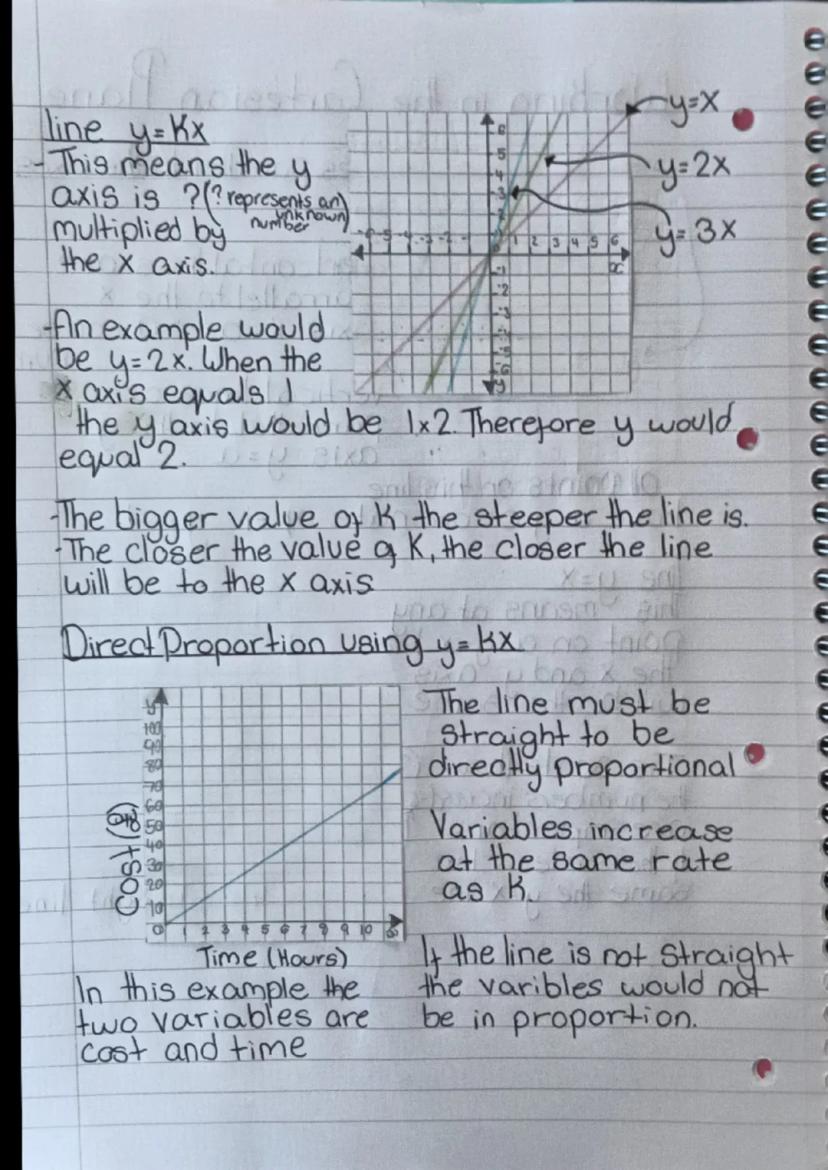 line y=Kx
- This means the y
axis is ?(? represents an
unknown
number)
multiplied by
the x axis.
y=x
y=2x
y=3x
6
5
4
3
2
1 2 3 4 5 6
x
-1
-2
-3
y
-An example would
be y=2x. When the
x axis equals 1
the y axis would be 1x2. Therefore y would
equal 2.
-The bigger value of K the steeper the line is.
-The closer the value of K, the closer the line
will be to the x axis
Direct Proportion using y=kx
y
100
90
80
70
60
50
40
30
20
10
0 1 2 3 4 5 6 7 8 9 10
Cost
Time (Hours)
The line must be
straight to be
directly proportional
Variables increase
at the same rate
as K.
In this example the
two variables are
cost and time
If the line is not straight
the varibles would not
be in proportion.